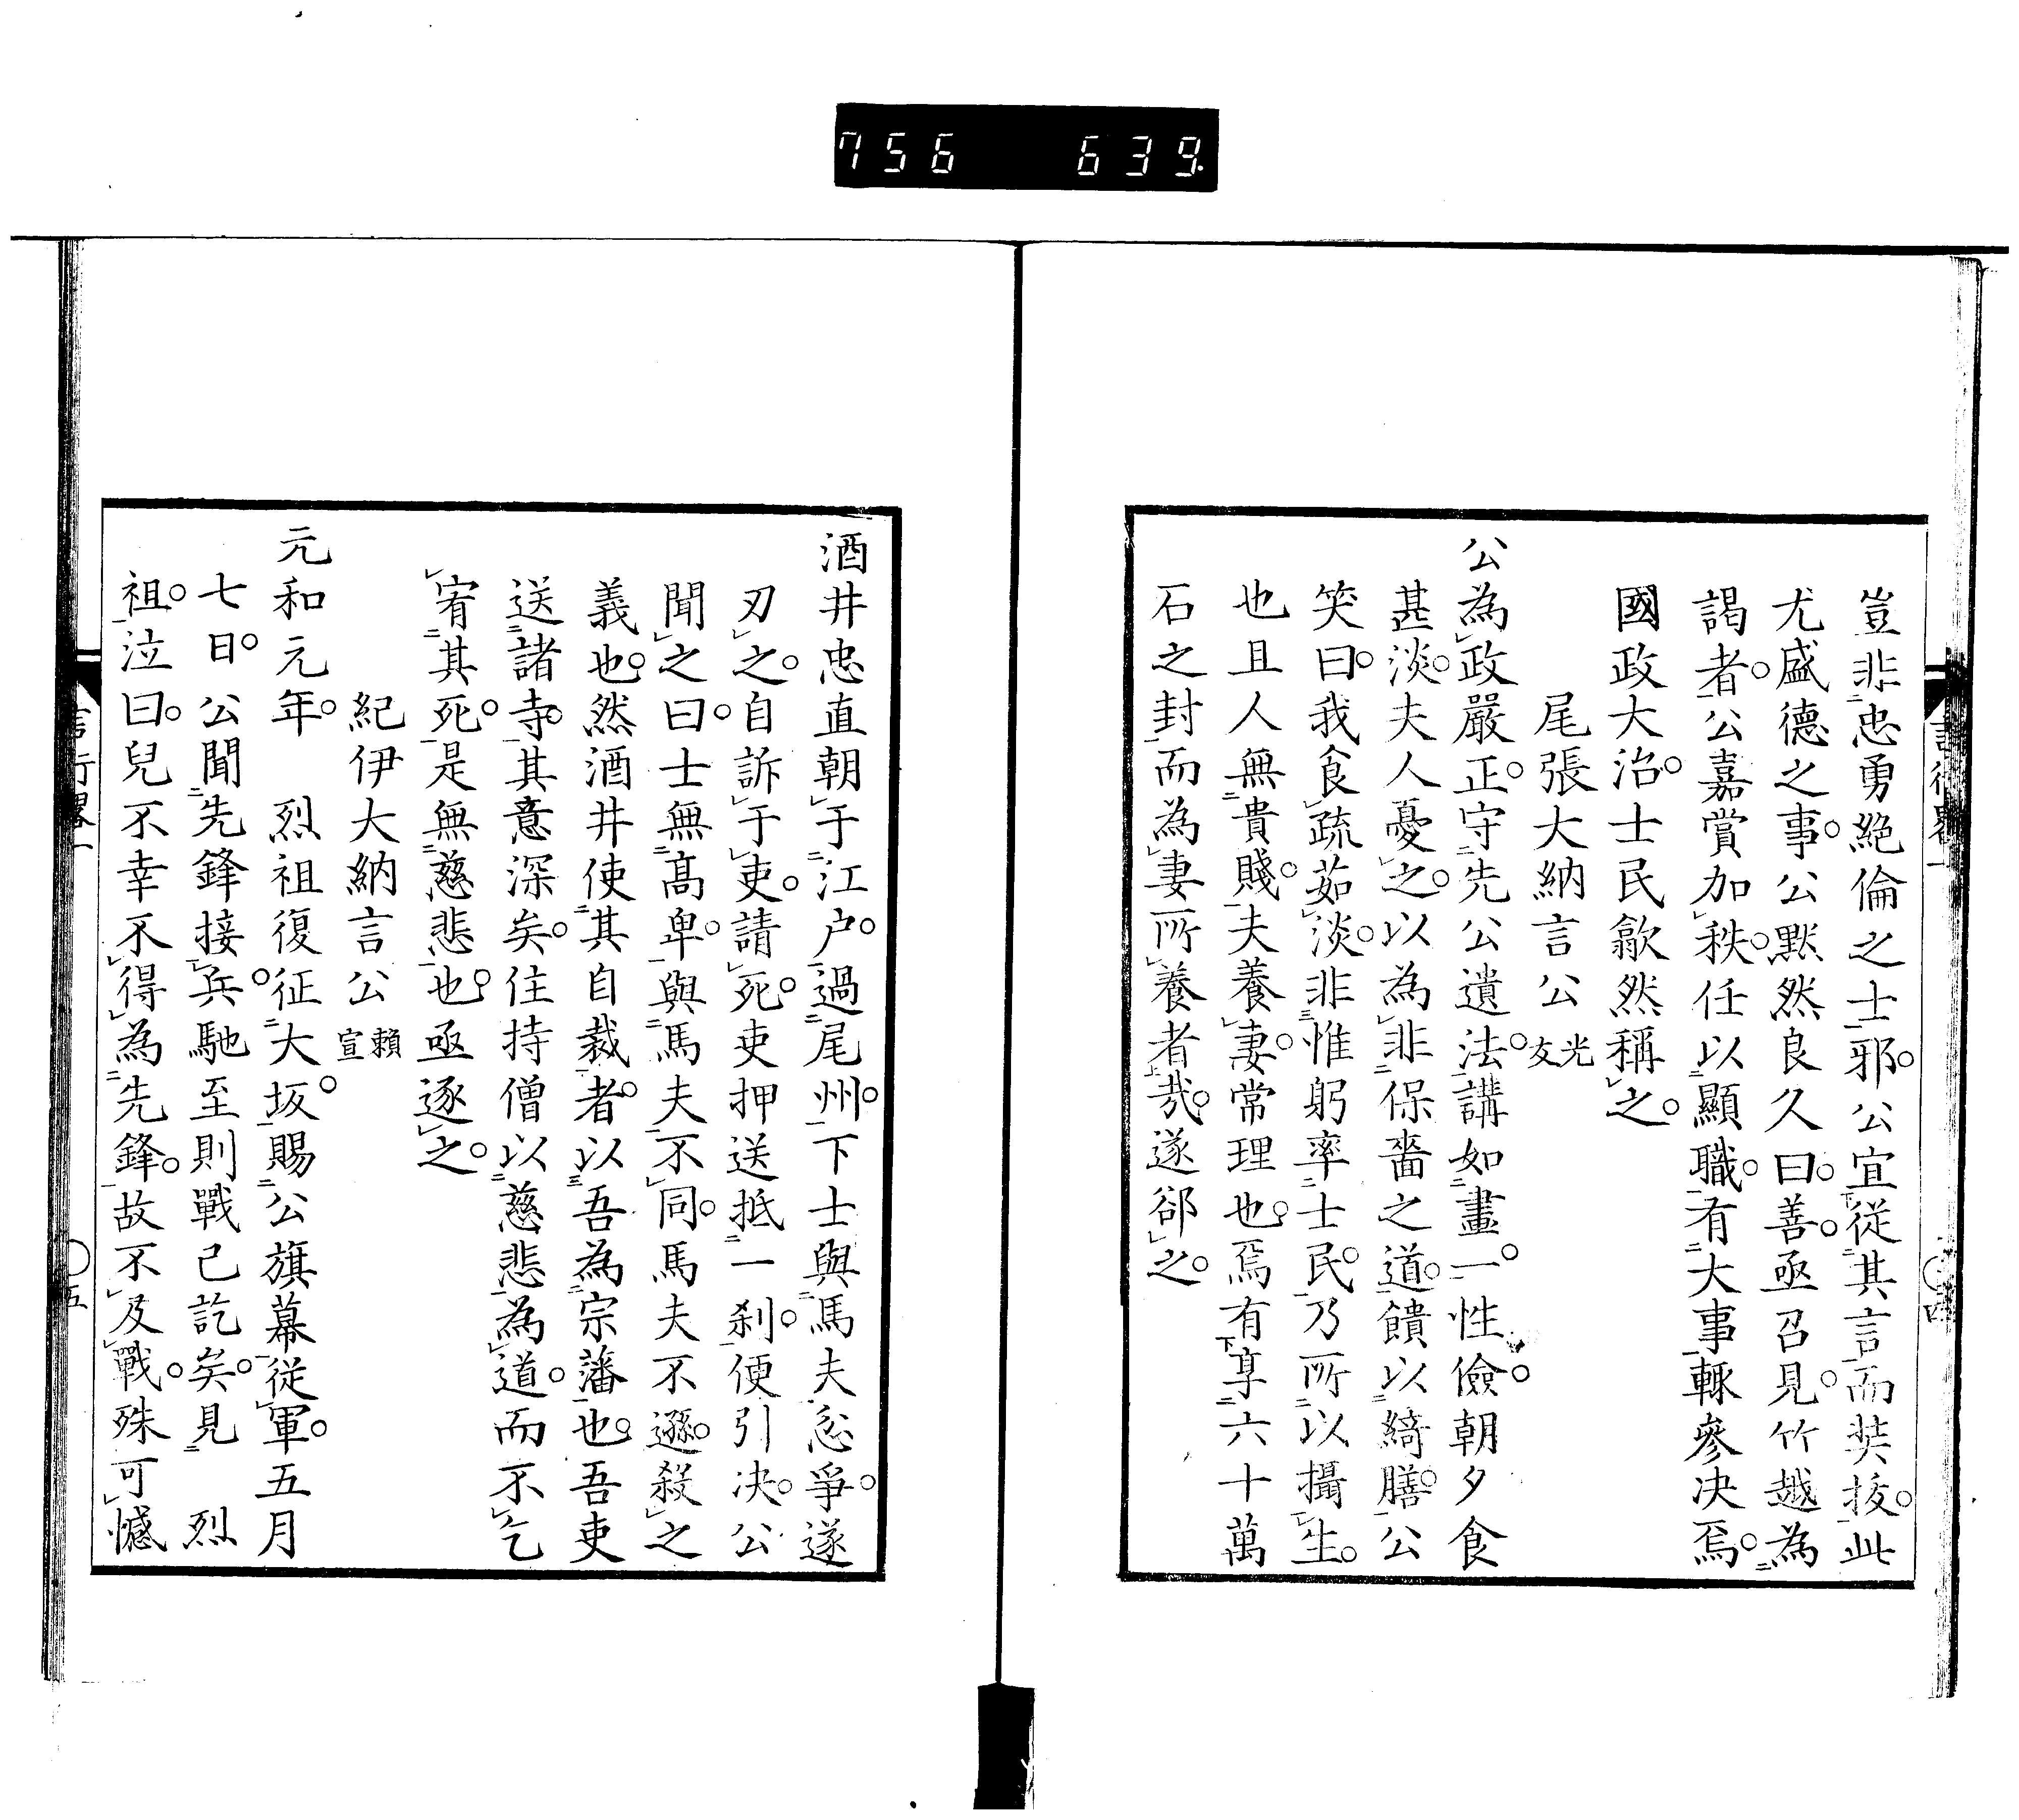 756 639
豈非忠勇絶倫之士邪。公宜從其言而奘拔。此
尤盛德之事。公黙然良久曰。善。亟召見。竹越為
謁者。公嘉賞加秩。任以顯職。有大事輙參决焉。
國政大治。士民歙然稱之。
尾張大納言公 光友
公為政嚴正。守先公遺法。講如畫一。性儉。朝夕食
甚淡。夫人憂之。以為非保嗇之道。饋以綺膳。公
笑曰。我食疏茹淡。非惟躬率士民。乃所以攝生。
也且人無貴賤。夫養妻。常理也。焉有享六十萬
石之封而為妻所養者㢤。遂郤之。
言行畧一
〇四
酒井忠直朝于江户。過尾州。下士與馬夫忿爭。遂
刃之。自訴于吏。請死。吏押送抵一刹。便引决。公
聞之曰。士無髙卑。與馬夫不同。馬夫不遜。殺之
義也。然酒井使其自裁者。以吾為宗藩也。吾吏
送諸寺。其意深矣。住持僧以慈悲為道。而不乞
宥其死。是無慈悲也。亟逐之。
紀伊大納言公 頼宣
元和元年。 烈祖復征大坂。賜公旗幕從軍。五月
七日。公聞先鋒接兵。馳至則戰已訖矣。見 烈
祖。泣曰。兒不幸不得為先鋒。故不及戰。殊可憾
言行畧一
〇五